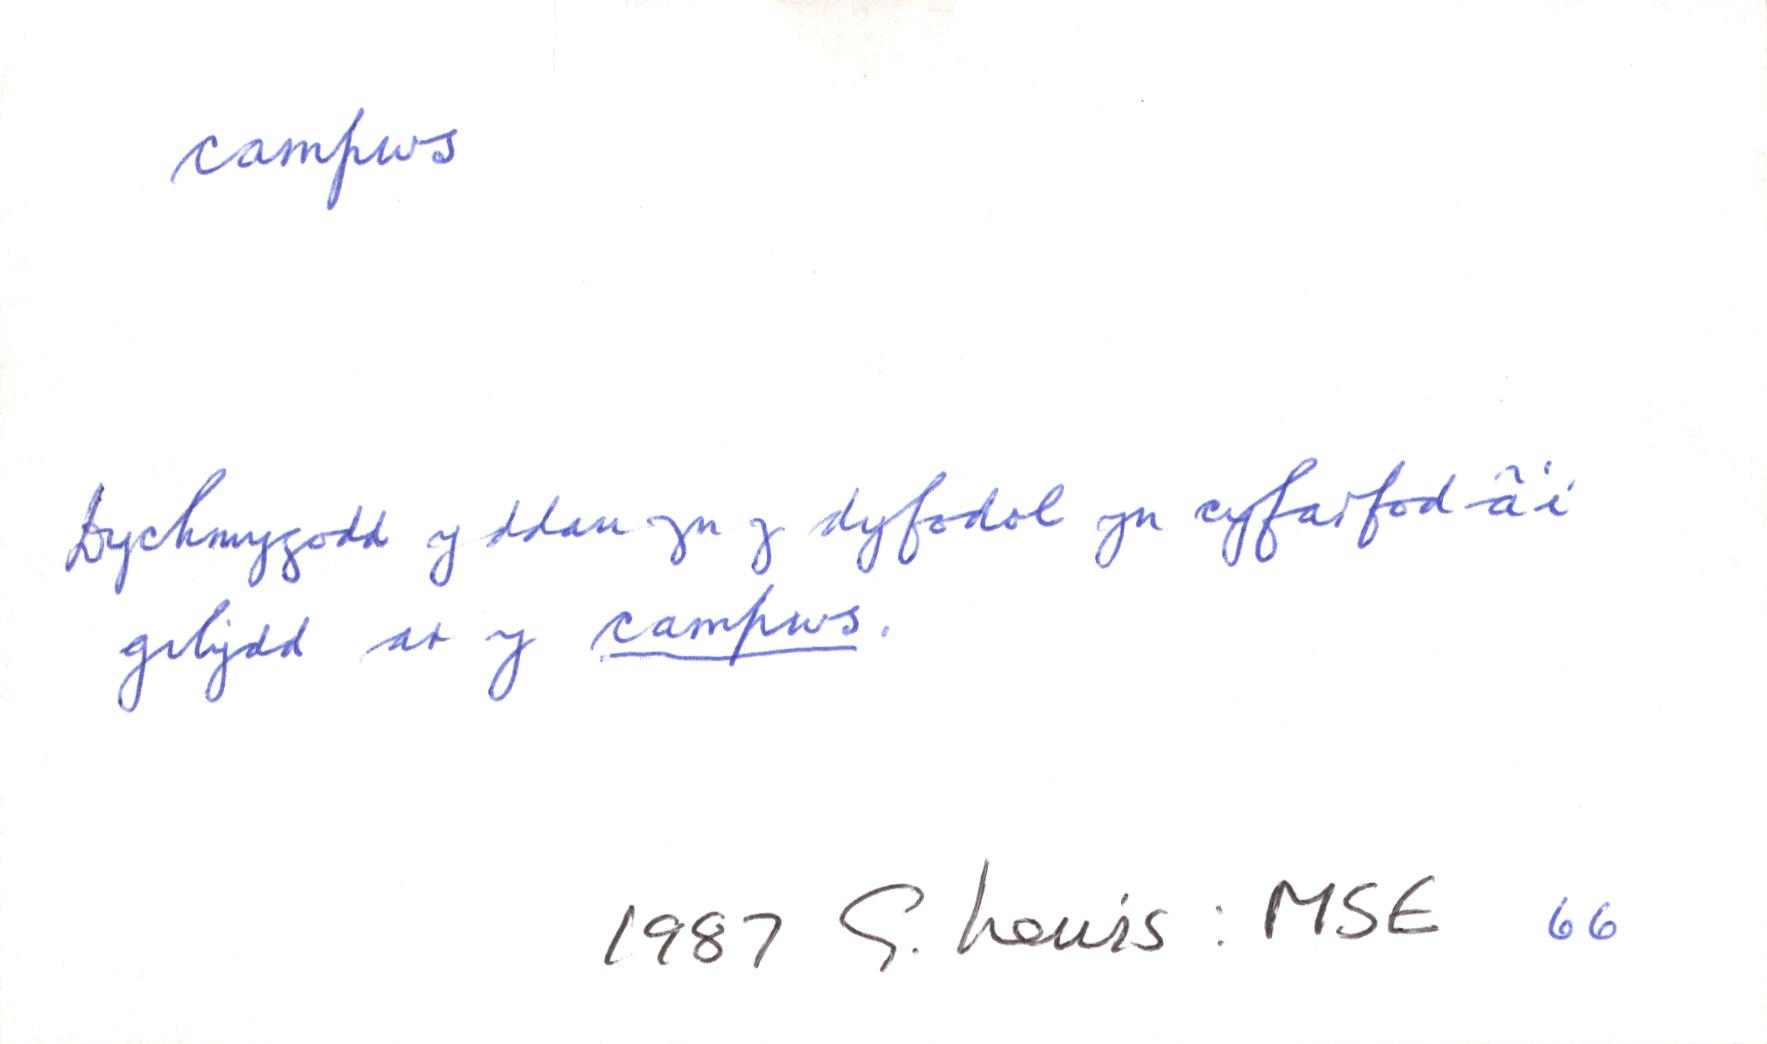 campws
Dychmygodd y ddau yn y dyfodol yn cyfarfod â'i
gilydd ar y campws.
1987 G. Lewis : MSE 66